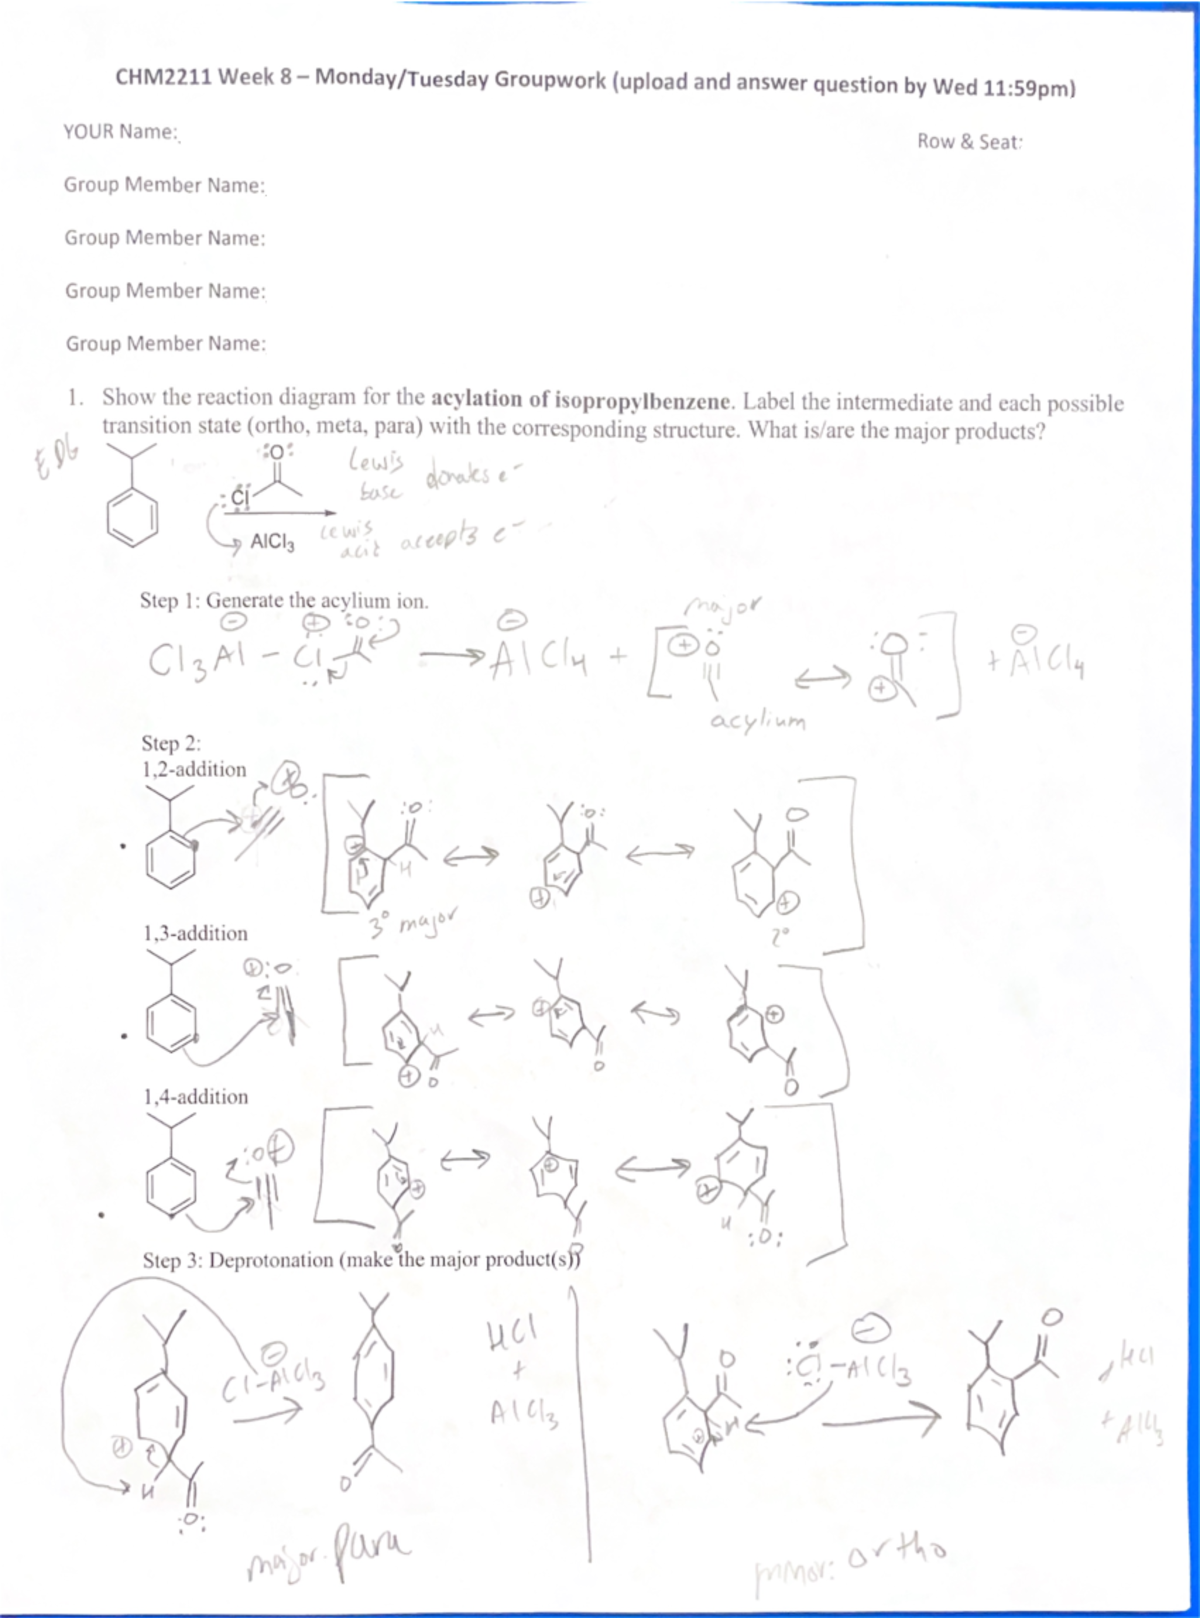 CHM2211 Week 8 – Monday/Tuesday Groupwork (upload and answer question by Wed 11:59pm)
YOUR Name:
Row & Seat:
Group Member Name:
Group Member Name:
Group Member Name:
Group Member Name:
1. Show the reaction diagram for the acylation of isopropylbenzene. Label the intermediate and each possible
transition state (ortho, meta, para) with the corresponding structure. What is/are the major products?
EDG
:O:
:Cl
AlCl3
Lewis
base donates e-
Lewis
acid accepts e-
Step 1: Generate the acylium ion.
⊖ ⊕ :O:
Cl3Al - Cl → ⊖ AlCl4 + [ ⊕ O ↔ :O: ⊕ ] + ⊖ AlCl4
major
acylium
Step 2:
1,2-addition
⊕ O
⊕ :O: H ↔ :O: ⊕ ↔ O ⊕
3° major
2°
1,3-addition
⊕ :O
H ⊕ O ↔ ⊕ O ↔ ⊕ O
1,4-addition
:O ⊕
⊕ O ↔ ⊕ O ↔ ⊕ H :O:
Step 3: Deprotonation (make the major product(s))
⊕ H :O:
⊖
Cl-AlCl3
→
O
HCl
+
AlCl3
O ⊕ H
⊖
:Cl-AlCl3
→
O
HCl
+ AlCl3
major: Para
minor: ortho